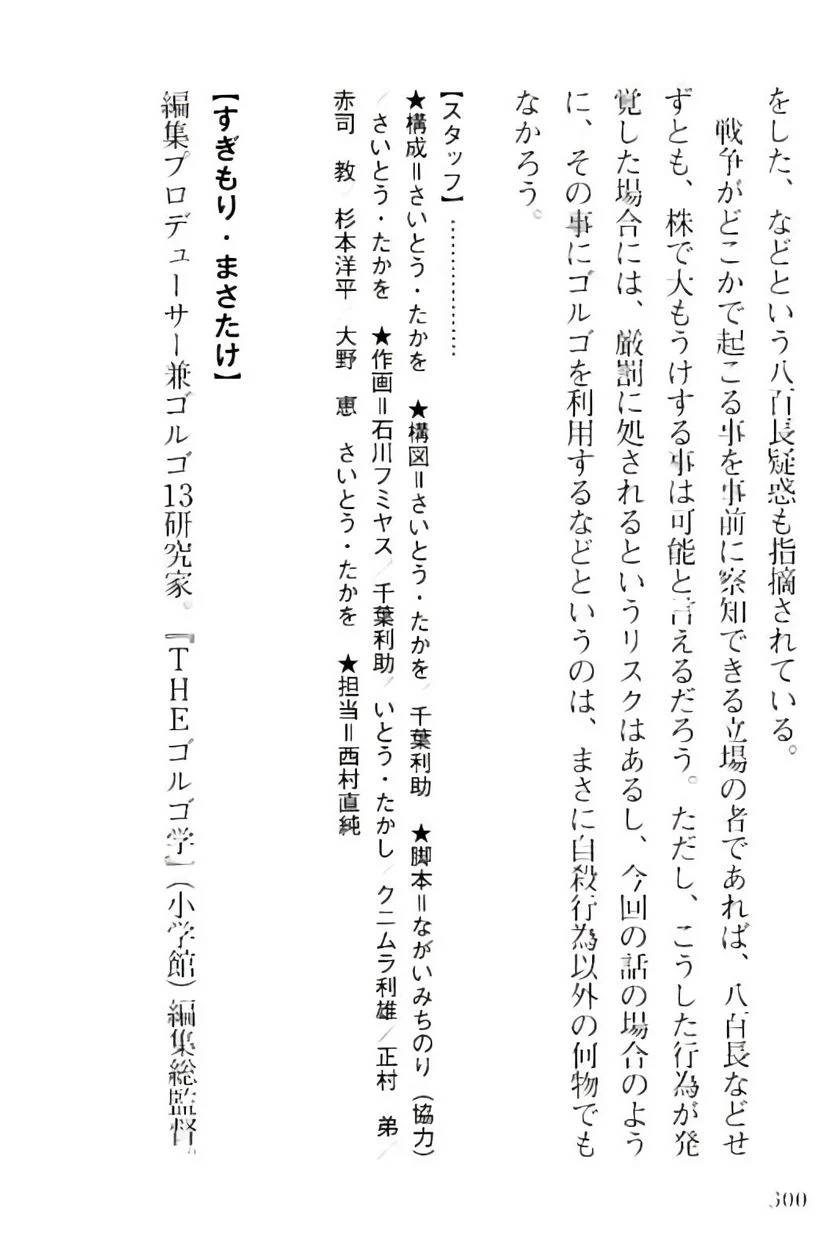 をした、などという八百長疑惑も指摘されている。
戦争がどこかで起こる事を事前に察知できる立場の者であれば、八百長などせ
ずとも、株で大もうけする事は可能と言えるだろう。ただし、こうした行為が発
覚した場合には、厳罰に処されるというリスクはあるし、今回の話の場合のよう
に、その事にゴルゴを利用するなどというのは、まさに自殺行為以外の何物でも
なかろう。
【スタッフ】………………
★構成=さいとう・たかを ★構図=さいとう・たかを/千葉利助 ★脚本=ながいみちのり(協力)
/さいとう・たかを ★作画=石川フミヤス/千葉利助/いとう・たかし/クニムラ利雄/正村 弟/
赤司 教/杉本洋平/大野 恵 さいとう・たかを ★担当=西村直純
【すぎもり・まさたけ】
編集プロデューサー兼ゴルゴ13研究家。『THEゴルゴ学』(小学館)編集総監督。
300